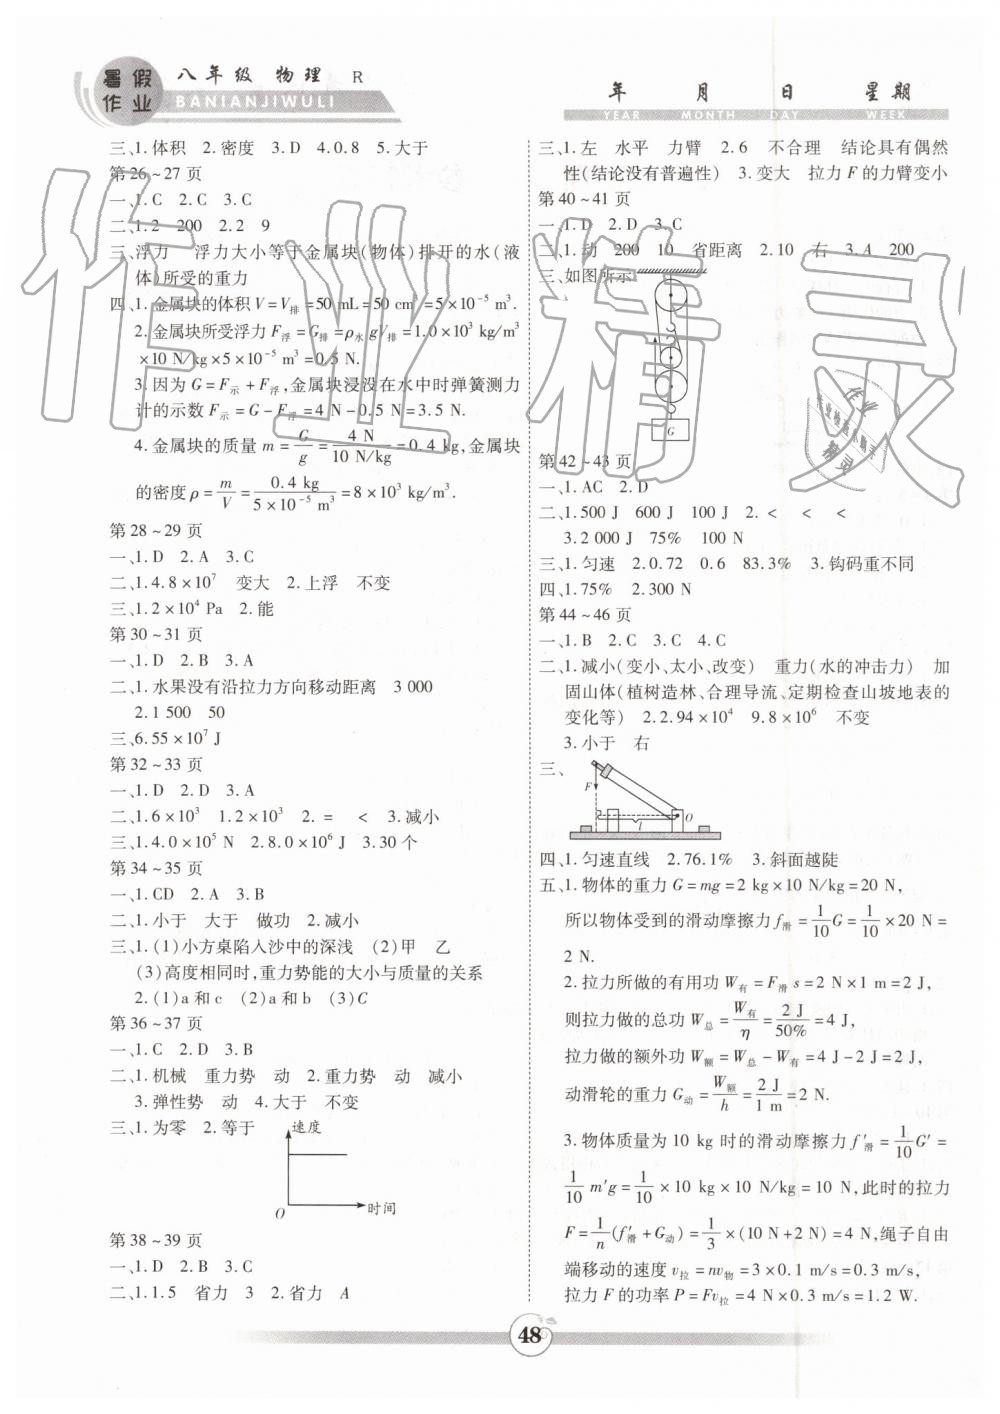 暑假作业
八年级 物理 R
BANIANJIWULI
年 月 日 星期
YEAR MONTH DAY WEEK
三、1.体积 2.密度 3.D 4.0.8 5.大于
第26~27页
一、1.C 2.C 3.C
二、1.2 200 2.2 9
三、浮力 浮力大小等于金属块(物体)排开的水(液
体)所受的重力
四、1.金属块的体积V=V排=50 mL=50 cm³=5×10⁻⁵ m³.
2.金属块所受浮力F浮=G排=ρ水gV排=1.0×10³ kg/m³
×10 N/kg×5×10⁻⁵ m³=0.5 N.
3.因为G=F示+F浮,金属块浸没在水中时弹簧测力
计的示数F示=G-F浮=4 N-0.5 N=3.5 N.
4.金属块的质量m=G/g=4 N/10 N/kg=0.4 kg,金属块
的密度ρ=m/V=0.4 kg/5×10⁻⁵ m³=8×10³ kg/m³.
第28~29页
一、1.D 2.A 3.C
二、1.4.8×10⁷ 变大 2.上浮 不变
三、1.2×10⁴ Pa 2.能
第30~31页
一、1.D 2.B 3.A
二、1.水果没有沿拉力方向移动距离 3 000
2.1 500 50
三、6.55×10⁷ J
第32~33页
一、1.D 2.D 3.A
二、1.6×10³ 1.2×10³ 2.= < 3.减小
三、1.4.0×10⁵ N 2.8.0×10⁶ J 3.30个
第34~35页
一、1.CD 2.A 3.B
二、1.小于 大于 做功 2.减小
三、1.(1)小方桌陷入沙中的深浅 (2)甲 乙
(3)高度相同时,重力势能的大小与质量的关系
2.(1)a和c (2)a和b (3)C
第36~37页
一、1.C 2.D 3.B
二、1.机械 重力势 动 2.重力势 动 减小
3.弹性势 动 4.大于 不变
三、1.为零 2.等于
速度
O
时间
第38~39页
一、1.D 2.B 3.C
二、1.1.5 省力 3 2.省力 A
三、1.左 水平 力臂 2.6 不合理 结论具有偶然
性(结论没有普遍性) 3.变大 拉力F的力臂变小
第40~41页
一、1.D 2.D 3.C
二、1.动 200 10 省距离 2.10 右 3.4 200
三、如图所示
G
第42~43页
一、1.AC 2.D
二、1.500 J 600 J 100 J 2.< < <
3.2 000 J 75% 100 N
三、1.匀速 2.0.72 0.6 83.3% 3.钩码重不同
四、1.75% 2.300 N
第44~46页
一、1.B 2.C 3.C 4.C
二、1.减小(变小、太小、改变) 重力(水的冲击力) 加
固山体(植树造林、合理导流、定期检查山坡地表的
变化等) 2.2.94×10⁴ 9.8×10⁶ 不变
3.小于 右
三、
F
l
O
四、1.匀速直线 2.76.1% 3.斜面越陡
五、1.物体的重力G=mg=2 kg×10 N/kg=20 N,
所以物体受到的滑动摩擦力f滑=1/10G=1/10×20 N=
2 N.
2.拉力所做的有用功W有=F滑s=2 N×1 m=2 J,
则拉力做的总功W总=W有/η=2 J/50%=4 J,
拉力做的额外功W额=W总-W有=4 J-2 J=2 J,
动滑轮的重力G动=W额/h=2 J/1 m=2 N.
3.物体质量为10 kg时的滑动摩擦力f′滑=1/10G′=
1/10m′g=1/10×10 kg×10 N/kg=10 N,此时的拉力
F=1/n(f′滑+G动)=1/3×(10 N+2 N)=4 N,绳子自由
端移动的速度v拉=nv物=3×0.1 m/s=0.3 m/s,
拉力F的功率P=Fv拉=4 N×0.3 m/s=1.2 W.
48
作业精灵